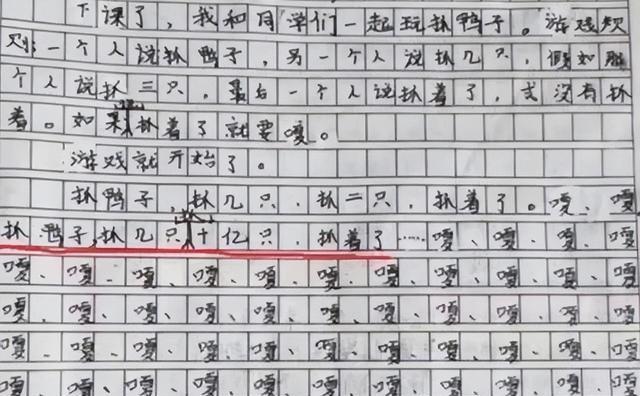 下课了,我和同学们一起玩抓鸭子。游戏规
则:一个人说抓鸭子,另一个人说抓几只,假如那
个人说抓三只,最后一个人说抓着了,或没有抓
着。如果抓着了就要嘎。
游戏就开始了。
抓鸭子,抓几只,抓二只,抓着了。嘎、嘎
抓鸭子,抓几只,十亿只,抓着了……嘎、嘎、嘎、嘎
嘎、嘎、嘎、嘎、嘎、嘎、嘎、嘎、嘎、嘎、嘎
嘎、嘎、嘎、嘎、嘎、嘎、嘎、嘎、嘎、嘎、嘎
嘎、嘎、嘎、嘎、嘎、嘎、嘎、嘎、嘎、嘎、嘎
嘎、嘎、嘎、嘎、嘎、嘎、嘎、嘎、嘎、嘎、嘎